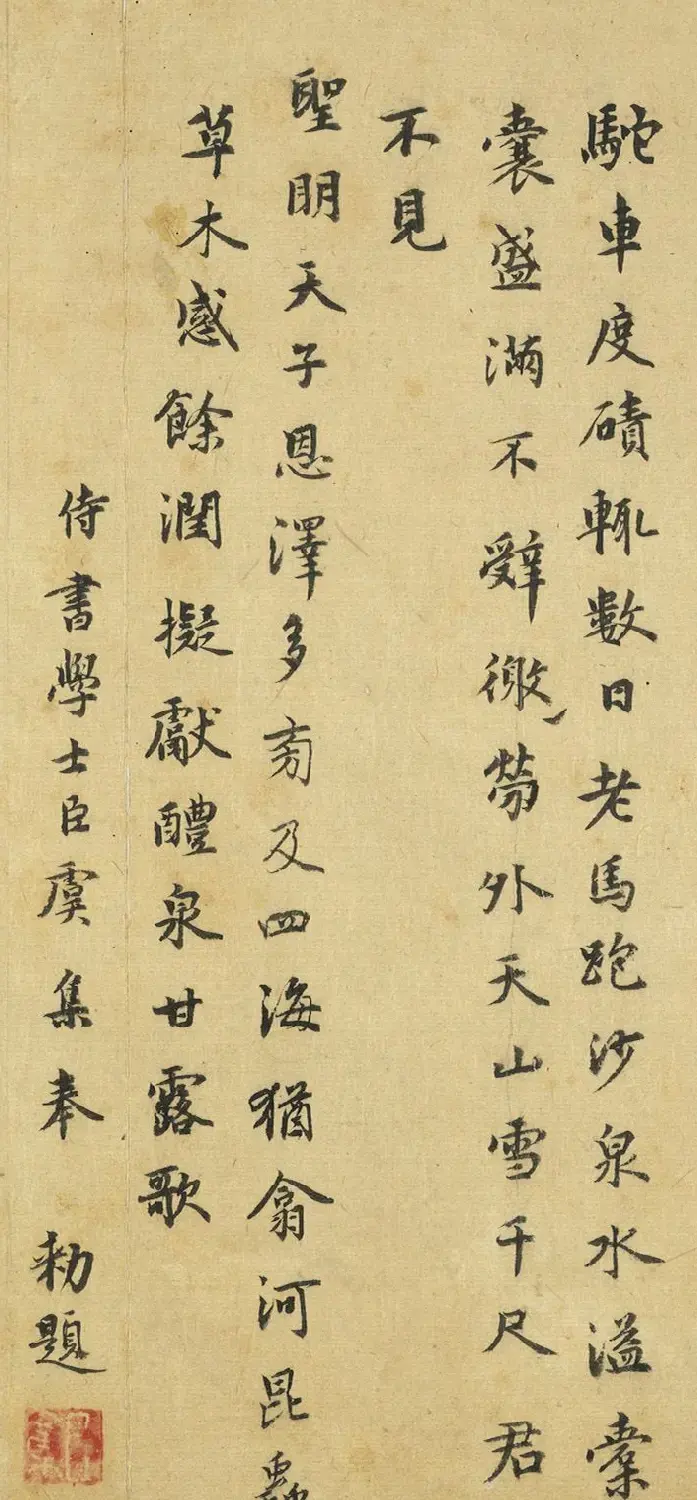 駝車度磧輒數日老馬跑沙泉水溢橐
囊盛滿不辭徼勞外天山雪千尺君
不見
聖明天子恩澤多旁及四海猶翕河昆蟲
草木感餘潤擬獻醴泉甘露歌
侍書學士臣虞集奉 勑題